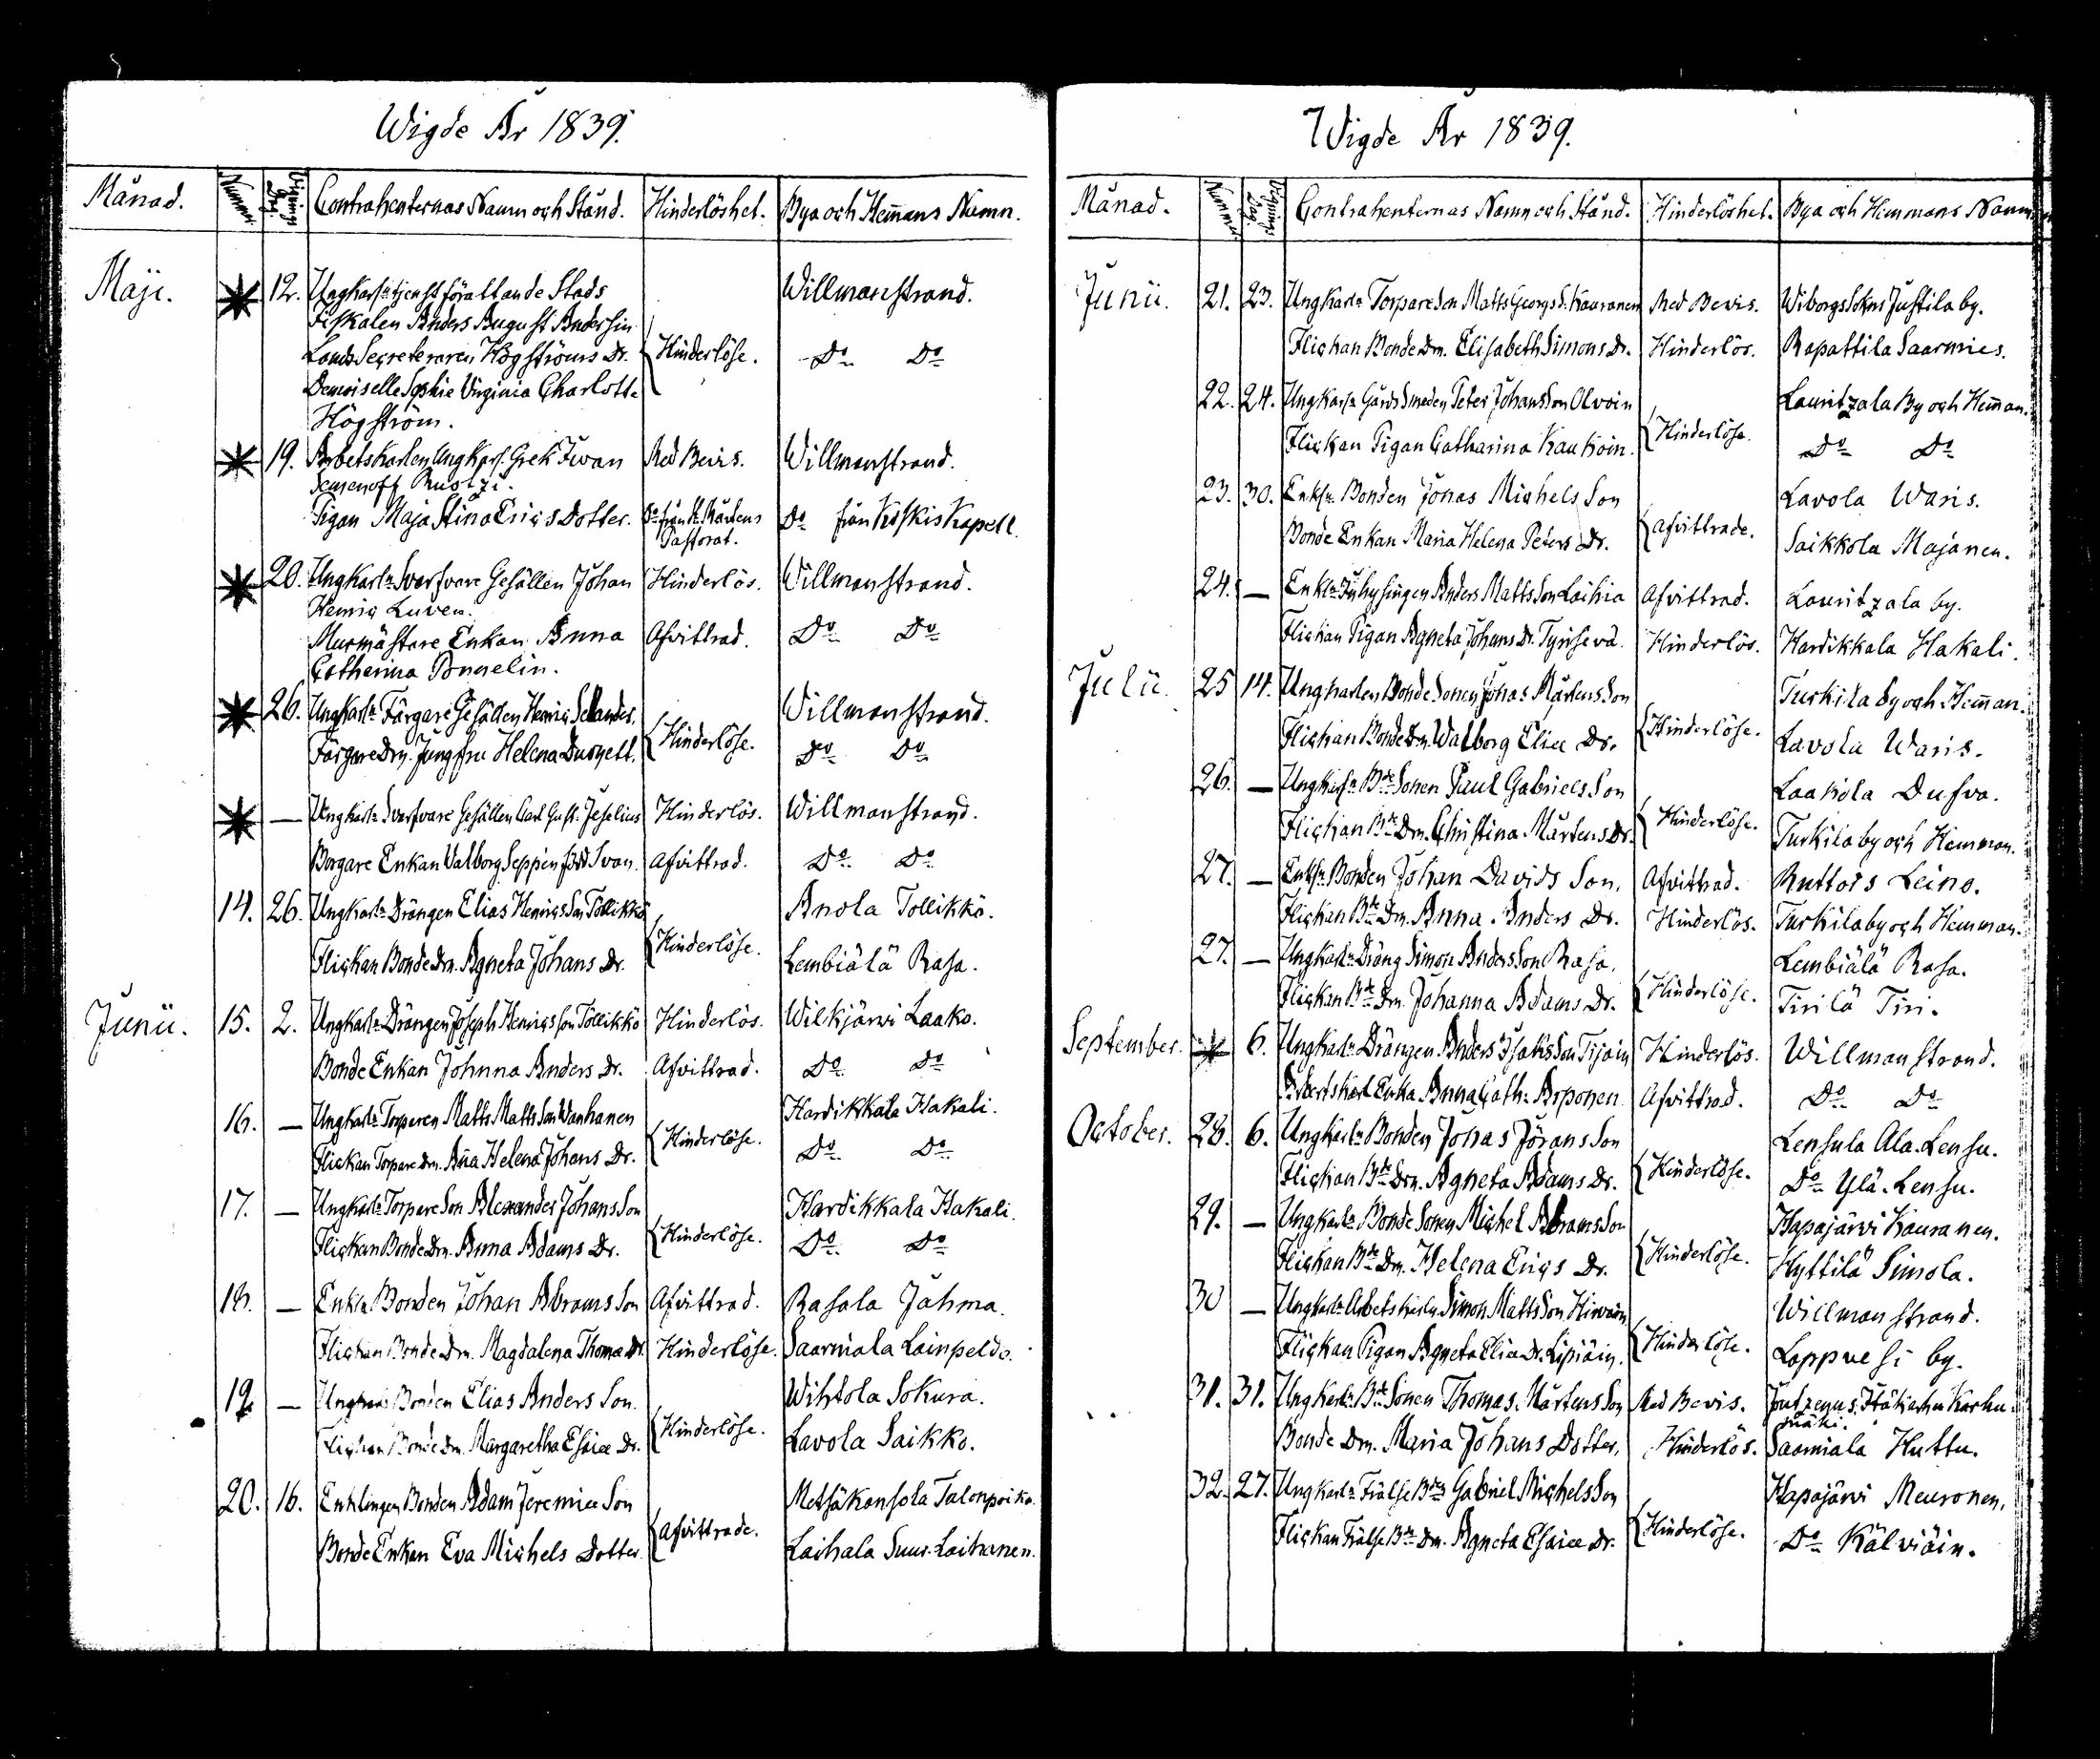 Wigde År 1839.
Månad. Nummer Vignings Dag. Contrahenternas Namn och Stånd. Hinderlöshet. Bya och Hem̄ans Namn.
Maji. 12. Ungkarln tjenst förättande Stads Willmanstrand.
Fiskalen Anders August Andersin
Lands Secreteraren Högströms Dr. Hinderlöse. Do Do
Demoiselle Sophie Virginia Charlotte
Högström.
19. Arbetskarlen Ungkarl. Grek Iwan Med Bevis. Willmanstrand.
Semenoff
Pigan Maja Stina Erics Dotter. Do från St. Mårtens Do från Kiskis Kapell.
Pastorat.
20. Ungkarln Svarfvare Gesällen Johan Hinderlös. Willmanstrand.
Henric Luven.
Murmästare Enkan Anna Afvittrad. Do Do
Catherina Ponnelin.
26. Ungkarln Färgare Gesällen Henric Selander. Willmanstrand.
Färgare Drn. Jungfru Helena Hinderlöse. Do Do
— Ungkarln Svarfvare Gesällen Carl Gust. Jeselius Hinderlös. Willmanstrand.
Borgare Enkan Walborg Seppien född Ivan. Afvittrad. Do Do
14. 26. Ungkarln Drängen Elias Henrics Son Tollikko Anola Tollikko.
Flickan Bonde Drn. Agneta Johans Dr. Hinderlöse. Lembiälä Rasa.
Junii. 15. 2. Ungkarln Drängen Joseph Henrics Son Tollikko Hinderlös. Wilkjärvi Laako.
Bonde Enkan Johnna Anders Dr. Afvittrad. Do Do
16. — Ungkarln Torparen Matts Matts Son Wanhanen Hardikkala Hakali.
Flickan Torpare Drn. An̄a Helena Johans Dr. Hinderlöse. Do Do
17. — Ungkarln Torpare Son Alexander Johans Son Hardikkala Hakali.
Flickan Bonde Drn. Anna Adams Dr. Hinderlöse. Do Do
18. — Enkln Bonden Johan Abrams Son Afvittrad. Rasala Jahma.
Flickan Bonde Drn. Magdalena Thomæ Dr. Hinderlöse. Saarmala Lainpeldo.
19. — Ungkarln Bonden Elias Anders Son. Wihtola Sokura.
Flickan Bonde Drn. Margaretha Esaiæ Dr. Hinderlöse. Lavola Saikko.
20. 16. Enklingen Bonden Adam Jeremiæ Son Metsäkansola Talonpoika.
Bonde Enkan Eva Michels Dotter. Afvittrade. Laihala Suur-Laihanen.
Wigde År 1839.
Månad. Nummer Vignings Dag. Contrahenternas Namn och Stånd. Hinderlöshet. Bya och Hemmans Namn
Junii. 21. 23. Ungkarln Torpare Son Matts Georgs S. Kauranen Med Bevis. Wiborgs Sokns Justila by.
Flickan Bonde Drn. Elisabeth Simons Dr. Hinderlös. Rapattila Saarmies.
22. 24. Ungkarln Gårds Smeden Peter Johans Son Olvoin Lauritzala By och Hem̄an.
Flickan Pigan Catharina Kaukoin. Hinderlöse. Do Do
23. 30. Enkln Bonden Jonas Michels Son Lavola Waris.
Bonde Enkan Maria Helena Peters Dr. Afvittrade. Saikkola Majanen.
24. — Enkln Inhysingen Anders Matts Son Laihia Afvittrad. Lauritzala by.
Flickan Pigan Agneta Johans Dr. Hinderlös. Hardikkala Hakali.
Julii. 25 14. Ungkarlen Bonde Sonen Jonas Mårtens Son Turkila by och Hem̄an.
Flickan Bonde Drn. Walborg Eliæ Dr. Hinderlöse. Lavola Waris.
26. — Ungkarln Bde Sonen Paul Gabriels Son Laakola Dufva.
Flickan Bde Drn. Christina Mårtens Dr. Hinderlöse. Turkila by och Hemman.
27. — Enkln Bonden Johan Davids Son. Afvittrad. Ruttois Leino.
Flickan Bde Drn. Anna Anders Dr. Hinderlös. Turkila by och Hemman.
27. — Ungkarln Dräng Simon Anders Son Rasa. Lembiälä Rasa.
Flickan Bde Drn. Johanna Adams Dr. Hinderlöse. Tirilä Tiri.
September. 6. Ungkarln Drängen Anders Isaks Son Hinderlös. Willmanstrand.
Arbetskarl Enka Anna Cath. Arponen. Afvittrad. Do Do
October. 28. 6. Ungkarln Bonden Johas Jörans Son Lensula Ala-Lensu.
Flickan Bde Drn. Agneta Adams Dr. Hinderlöse. Do Ylä-Lensu.
29. — Ungkarln Bonde Sonen Michel Abrams Son Hapajärvi Kauranen.
Flickan Bde Drn. Helena Erics Dr. Hinderlöse. Hyttilä Simola.
30 — Ungkarln Arbetskarln Simon Matts Son Hirvoin Willmanstrand.
Flickan Pigan Agneta Eliæ Dr. Lipiäin. Hinderlöse. Lappvesi by.
31. 31. Ungkarln Bde Sonen Thomas Mårtens Son Med Bevis. Joutzenus. Karhu-
mäki.
Bonde Drn. Maria Johans Dotter. Hinderlös. Saarmala Huttu.
32. 27. Ungkarln Frälse Bden Gabriel Michels Son Hapajärvi Meuronen.
Flickan Frälse Bde Drn. Agneta Esaiæ Dr. Hinderlöse. Do Kälviäin.